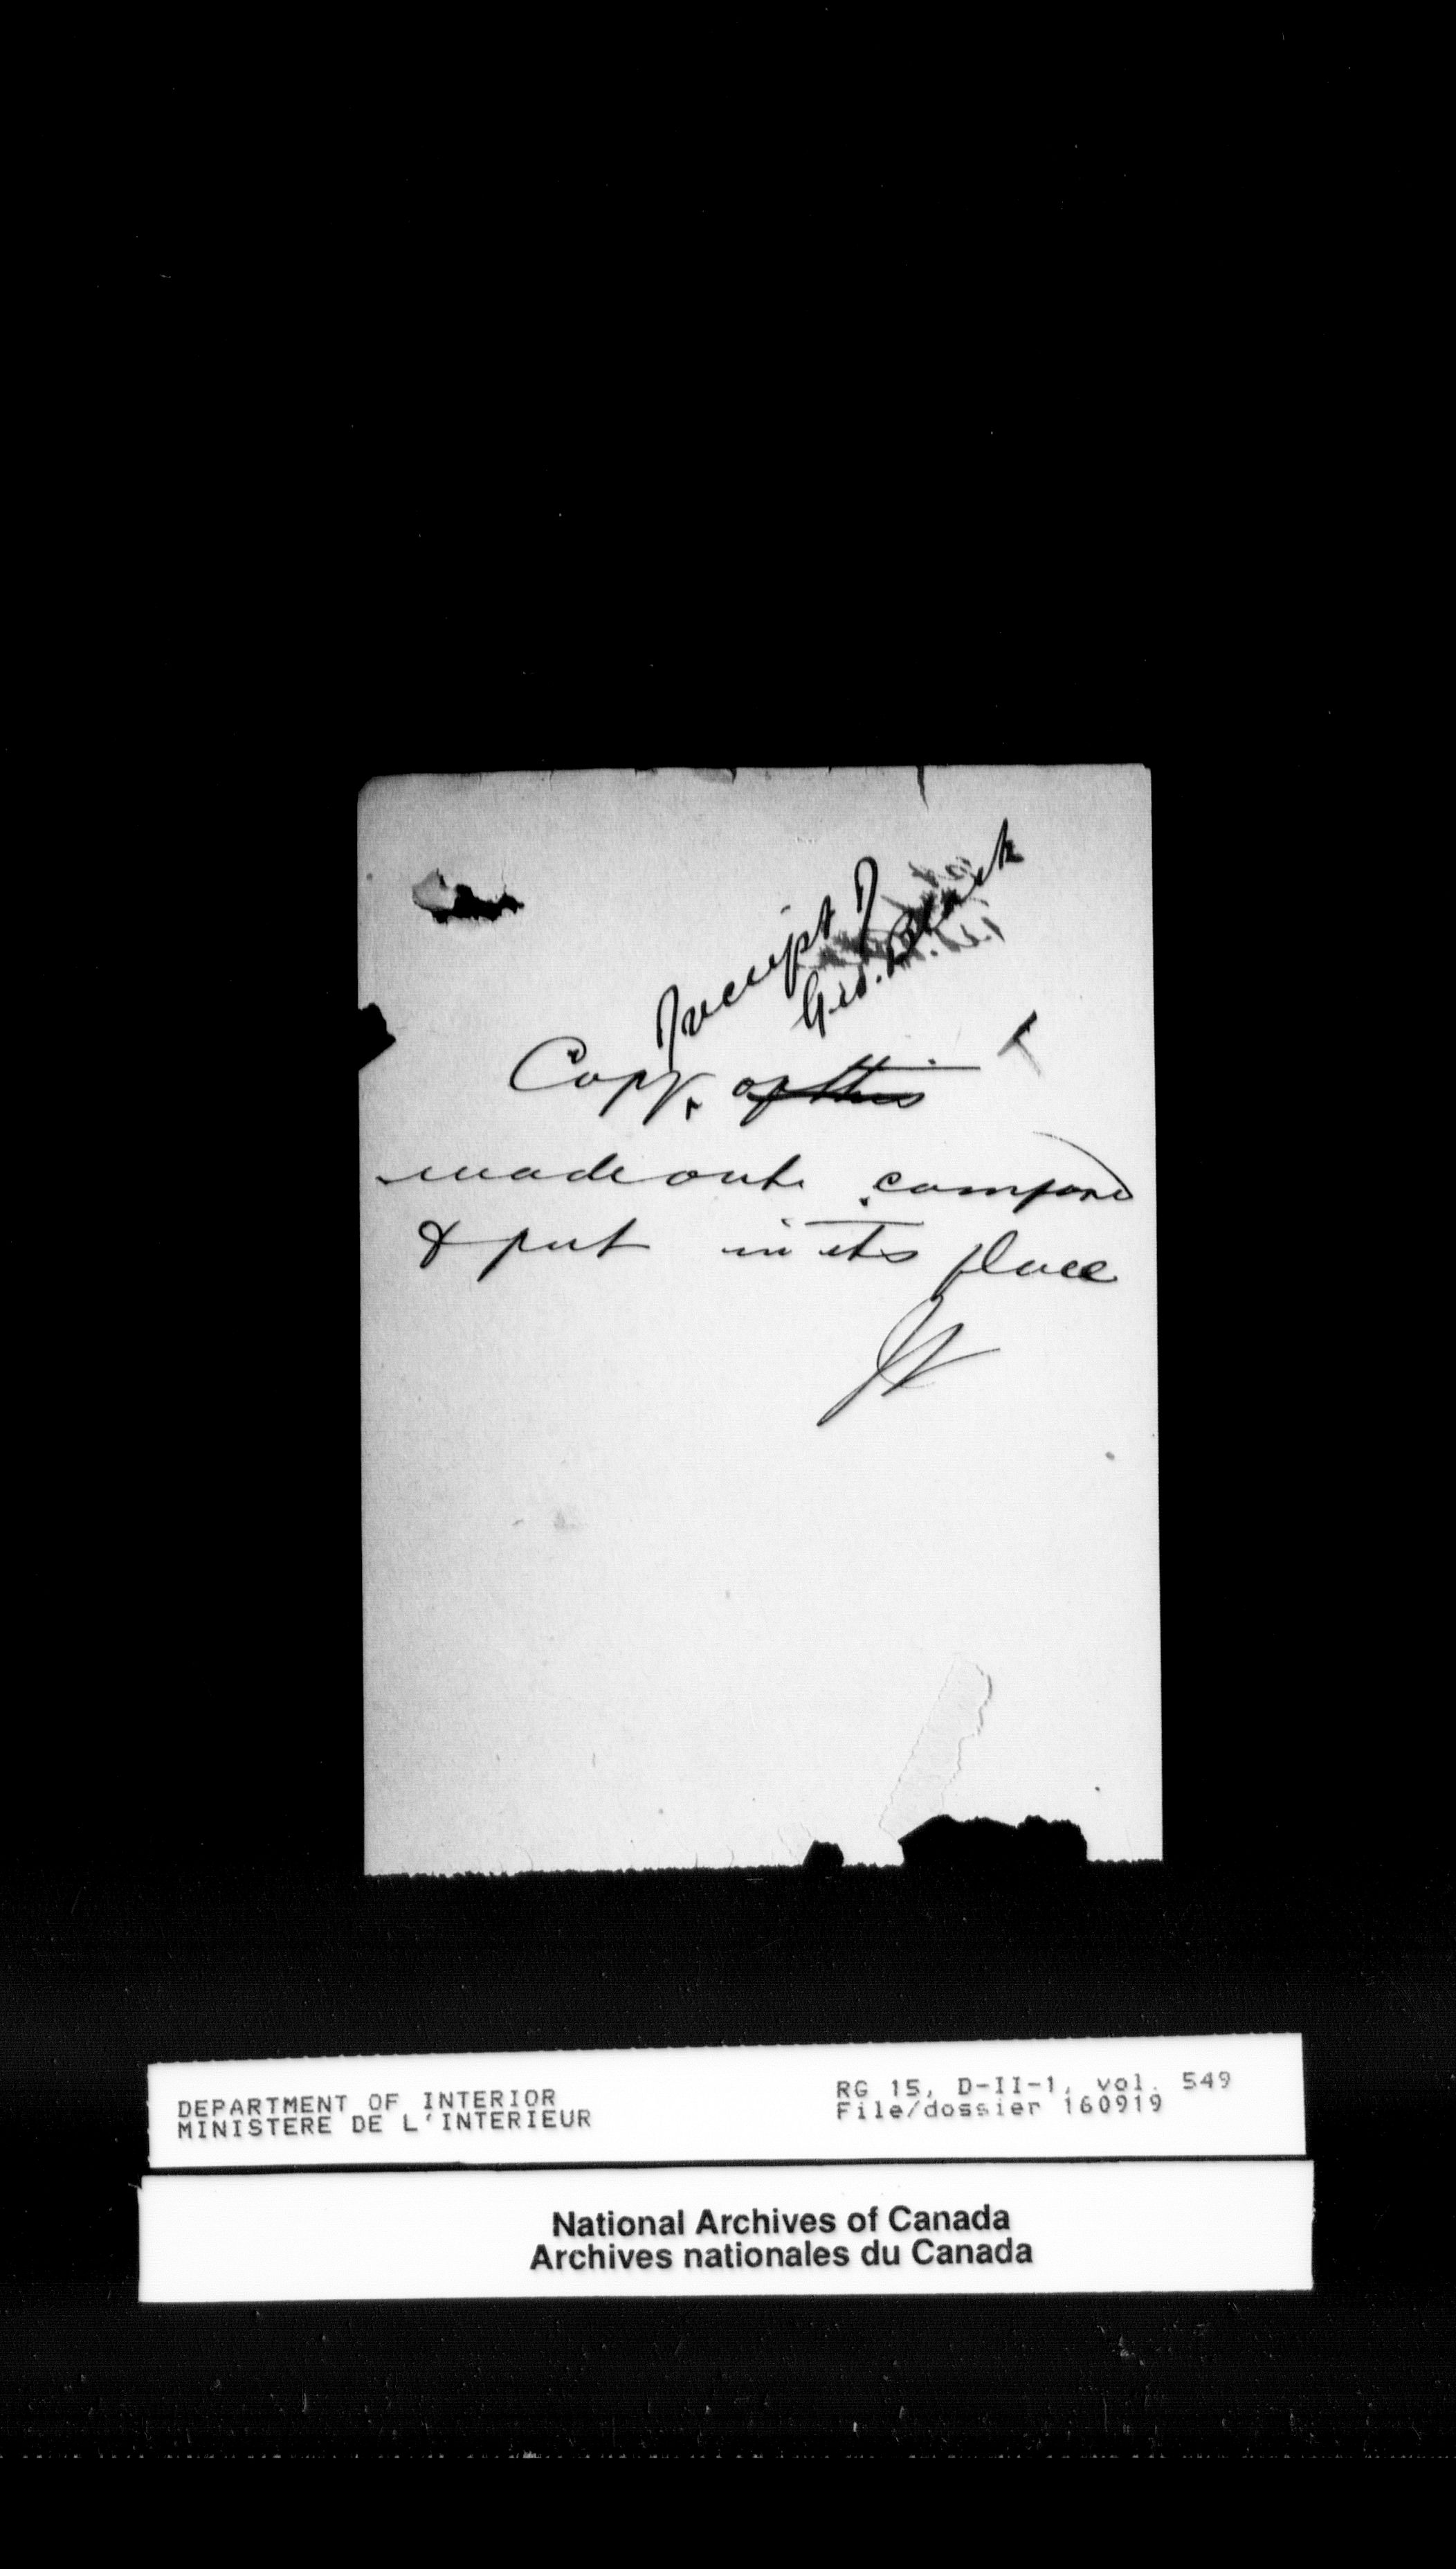 receipt of
Geo. Black
Copy of this
made out compare
& put in its place
DEPARTMENT OF INTERIOR
MINISTERE DE L'INTERIEUR
RG 15, D-II-1, vol. 549
File/dossier 160919
National Archives of Canada
Archives nationales du Canada